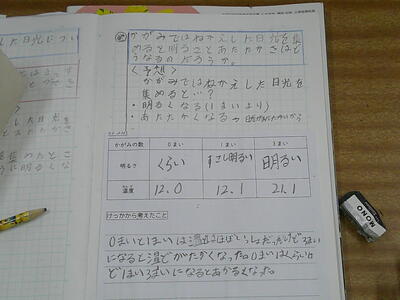 かがみではねかえした日光を集
めると明るさとあたたかさはど
うなるのだろうか。
〈予想〉
かがみではねかえした日光を
集めると…?
・明るくなる(1まいより)
・あたたかくなる
かがみの数 0まい 1まい 3まい
明るさ くらい すこし明るい 明るい
温度 12.0 12.1 21.1
けっかから考えたこと
0まいと1まいは温度はほぼいっしょだったけど3まい
になると温どがたかくなった。0まいはくらいけ
ど1まい3まいになるとあかるくなった。
した日光につい
した日光
MONO